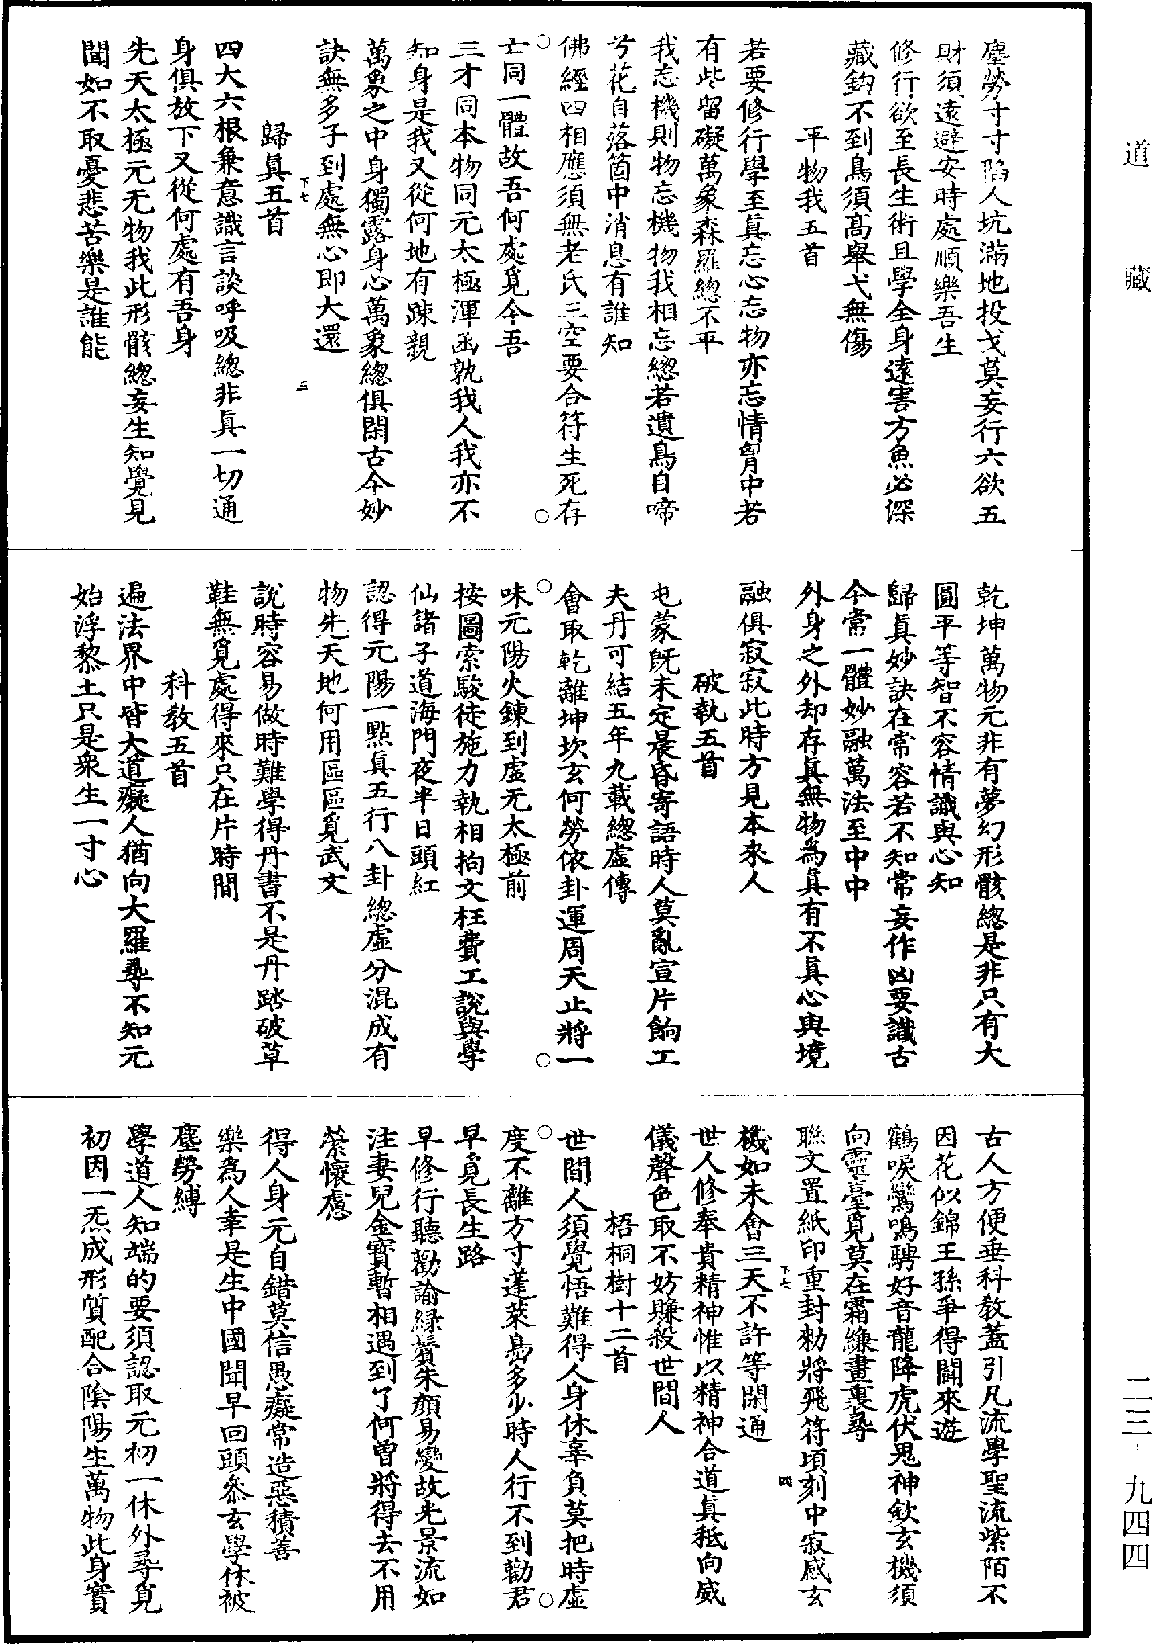 道藏
二三·九四四
塵勞寸寸陷人坑滿地投戈莫妄行六欲五
財須遠避安時處順樂吾生
修行欲至長生術且學全身遠害方魚必深
藏鈎不到鳥須高舉弋無傷
平物我五首
若要修行學至真忘心忘物亦忘情胷中若
有些留礙萬象森羅總不平
我忘機則物忘機物我相忘總若遺鳥自啼
兮花自落箇中消息有誰知
佛經四相應須無老氏三空要合符生死存
亡同一體故吾何處覓今吾
三才同本物同元太極渾凾孰我人我亦不
知身是我又從何地有踈親
萬象之中身獨露身心萬象總俱閑古今妙
訣無多子到處無心即大還
下七
三
歸真五首
四大六根兼意識言談呼吸總非真一切通
身俱放下又從何處有吾身
先天太極元无物我此形骸總妄生知覺見
聞如不取憂悲苦樂是誰能
乾坤萬物元非有夢幻形骸總是非只有大
圓平等智不容情識與心知
歸真妙訣在常容若不知常妄作凶要識古
今常一體妙融萬法至中中
外身之外却存真無物為真有不真心與境
融俱寂寂此時方見本來人
破執五首
屯蒙旣未定晨昏寄語時人莫亂宣片餉工
夫丹可結五年九載總虛傳
會取乾離坤坎玄何勞依卦運周天止將一
味元陽火鍊到虛无太極前
按圖索駿徒施力執相拘文枉費工說與學
仙諸子道海門夜半日頭紅
認得元陽一點真五行八卦總虛分混成有
物先天地何用區區覓武文
說時容易做時難學得丹書不是丹踏破草
鞋無覓處得來只在片時間
科教五首
遍法界中皆大道癡人猶向大羅尋不知元
始浮黎土只是衆生一寸心
古人方便垂科教蓋引凡流學聖流紫陌不
因花似錦王孫爭得闘來遊
鶴唳鸞鳴騁好音龍降虎伏鬼神欽玄機須
向靈臺覓莫在霜縑畫裏尋
聯文置紙印重封勑將飛符頃刻中寂感玄
機如未會三天不許等閑通
下七
四
世人修奉貴精神惟以精神合道真秪向威
儀聲色取不妨賺殺世間人
梧桐樹十二首
世間人須覺悟難得人身休辜負莫把時虛
度不離方寸蓬萊島多少時人行不到勸君
早覓長生路
早修行聽勸諭綠鬢朱顏易變故光景流如
注妻兒金寶暫相遇到了何曾將得去不用
縈懷慮
得人身元自錯莫信愚癡常造惡積善
樂為人幸是生中國聞早回頭叅玄學休被
塵勞縛
學道人知端的要須認取元初一休外尋覓
初因一炁成形質配合陰陽生萬物此身實